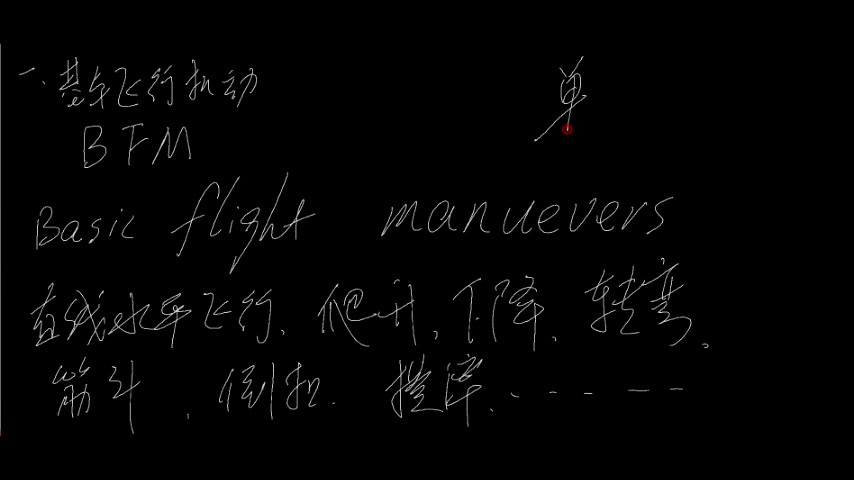 一.基本飞行机动
单
BFM
Basic flight manuevers
直线水平飞行、爬升、下降、转弯、
筋斗、倒扣、横滚、------